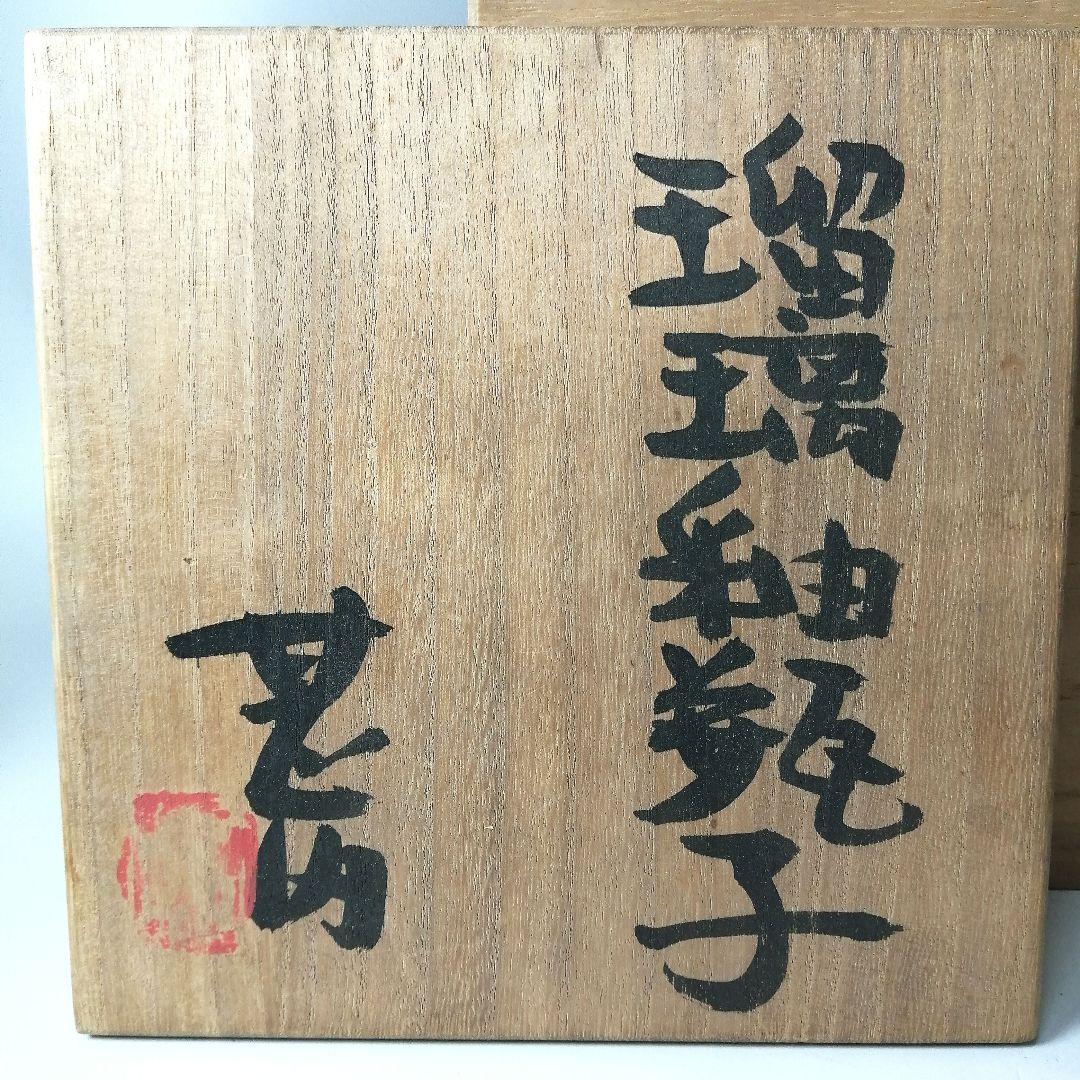 瑠璃釉瓶子